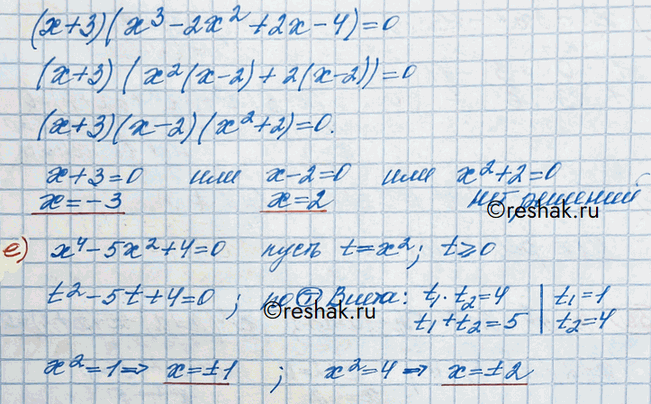 (x+3)(x³-2x²+2x-4)=0
(x+3)(x²(x-2)+2(x-2))=0
(x+3)(x-2)(x²+2)=0.
x+3=0 или x-2=0 или x²+2=0
x=-3 x=2 нет решений
©reshak.ru
е) x⁴-5x²+4=0 пусть t=x²; t≥0
t²-5t+4=0; по Т Виета: t₁·t₂=4 | t₁=1
t₁+t₂=5 | t₂=4
©reshak.ru
x²=1⇒ x=±1 ; x²=4⇒ x=±2